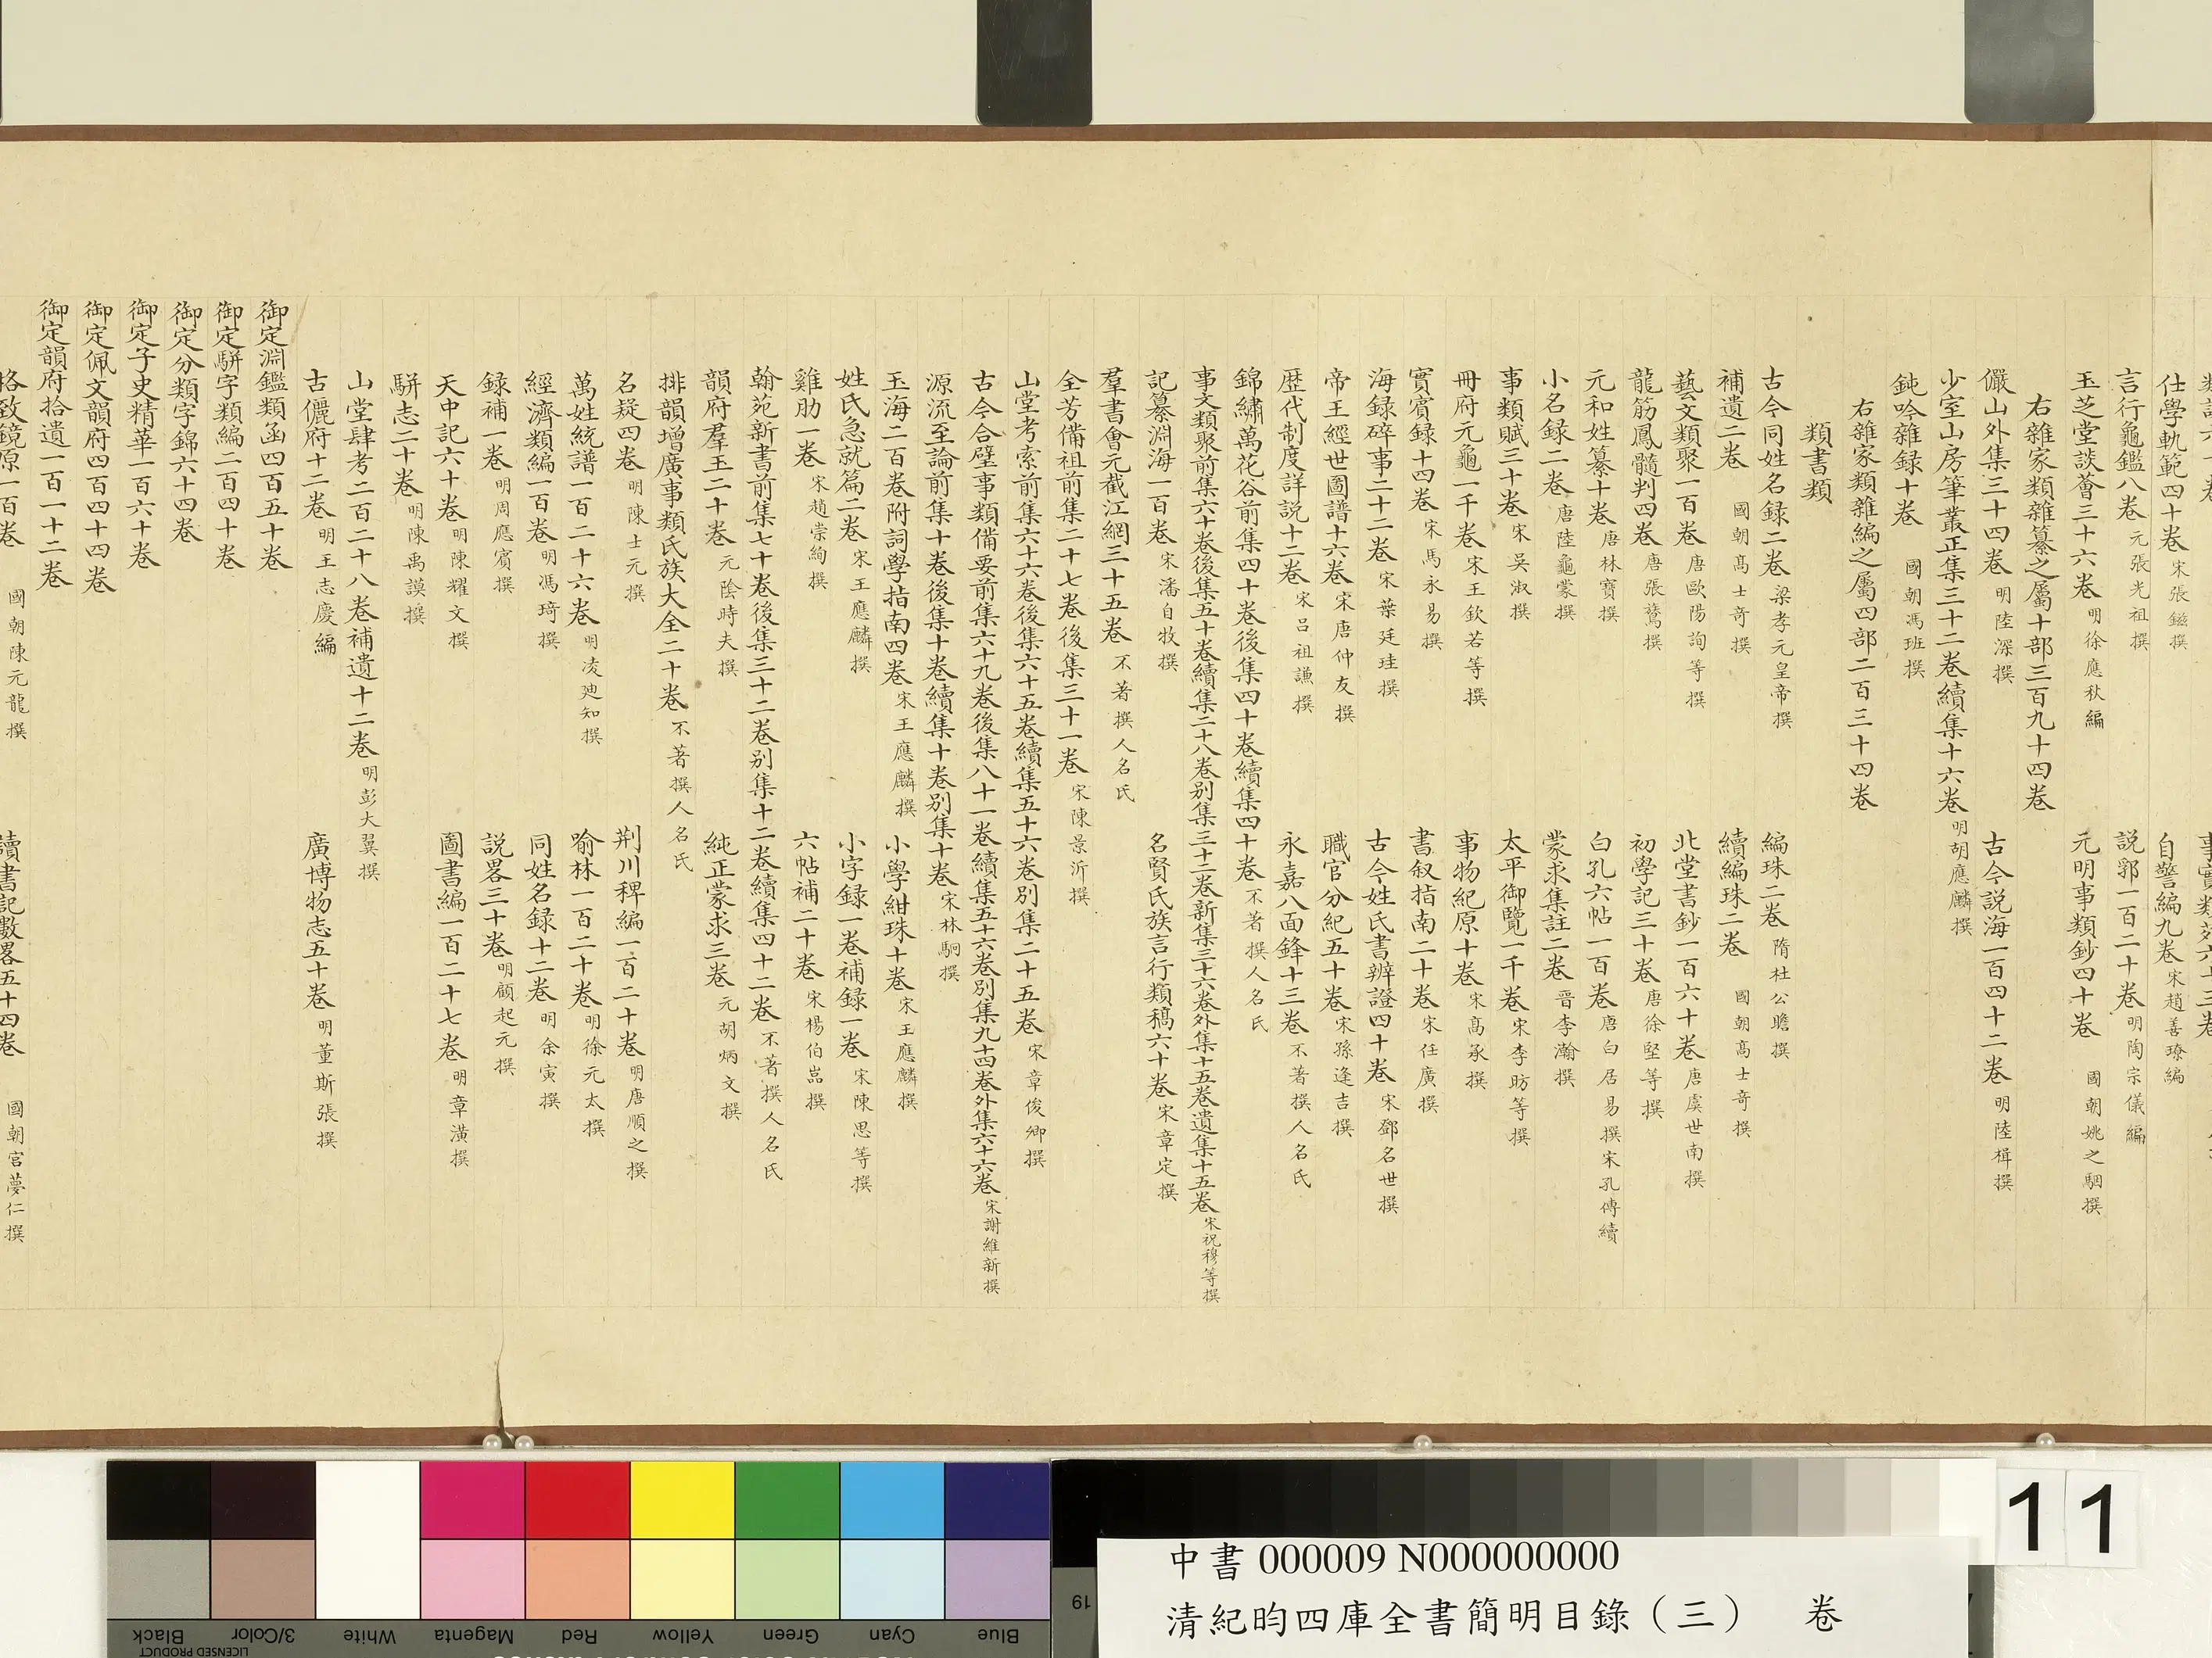 言行龜鑑八卷 元張光祖撰 説郛一百二十卷 明陶宗儀編
仕學軌範四十卷 宋張鎡撰 自警編九卷 宋趙善璙編
玉芝堂談薈三十六卷 明徐應秋編 元明事類鈔四十卷 國朝姚之駰撰
右雜家類雜纂之屬十部三百九十四卷
儼山外集三十四卷 明陸深撰 古今説海一百四十二卷 明陸楫撰
少室山房筆叢正集三十二卷續集十六卷 明胡應麟撰
鈍吟雜録十卷 國朝馮班撰
右雜家類雜編之屬四部二百三十四卷
類書類
古今同姓名録二卷 梁孝元皇帝撰 編珠二卷 隋杜公瞻撰
補遺二卷 國朝高士奇撰 續編珠二卷 國朝高士奇撰
藝文類聚一百卷 唐歐陽詢等撰 北堂書鈔一百六十卷 唐虞世南撰
龍筋鳳髓判四卷 唐張鷟撰 初學記三十卷 唐徐堅等撰
元和姓纂十卷 唐林寶撰 白孔六帖一百卷 唐白居易撰宋孔傳續
小名録二卷 唐陸龜蒙撰 蒙求集註二卷 晉李瀚撰
事類賦三十卷 宋吳淑撰 太平御覽一千卷 宋李昉等撰
冊府元龜一千卷 宋王欽若等撰 事物紀原十卷 宋高承撰
實賓録十四卷 宋馬永易撰 書叙指南二十卷 宋任廣撰
海録碎事二十二卷 宋葉廷珪撰 古今姓氏書辨證四十卷 宋鄧名世撰
帝王經世圖譜十六卷 宋唐仲友撰 職官分紀五十卷 宋孫逢吉撰
歷代制度詳説十二卷 宋呂祖謙撰 永嘉八面鋒十三卷 不著撰人名氏
錦繡萬花谷前集四十卷後集四十卷續集四十卷 不著撰人名氏
事文類聚前集六十卷後集五十卷續集二十八卷别集三十二卷新集三十六卷外集十五卷遺集十五卷 宋祝穆等撰
記纂淵海一百卷 宋潘自牧撰 名賢氏族言行類稿六十卷 宋章定撰
羣書會元截江網三十五卷 不著撰人名氏
全芳備祖前集二十七卷後集三十一卷 宋陳景沂撰
山堂考索前集六十六卷後集六十五卷續集五十六卷别集二十五卷 宋章俊卿撰
古今合璧事類備要前集六十九卷後集八十一卷續集五十六卷别集九十四卷外集六十六卷 宋謝維新撰
源流至論前集十卷後集十卷續集十卷别集十卷 宋林駉撰
玉海二百卷附詞學指南四卷 宋王應麟撰 小學紺珠十卷 宋王應麟撰
姓氏急就篇二卷 宋王應麟撰 小字録一卷補録一卷 宋陳思等撰
雞肋一卷 宋趙崇絢撰 六帖補二十卷 宋楊伯嵒撰
翰苑新書前集七十卷後集三十二卷别集十二卷續集四十二卷 不著撰人名氏
韻府羣玉二十卷 元陰時夫撰 純正蒙求三卷 元胡炳文撰
排韻增廣事類氏族大全二十卷 不著撰人名氏
名疑四卷 明陳士元撰 荆川稗編一百二十卷 明唐順之撰
萬姓統譜一百二十六卷 明凌廸知撰 喻林一百二十卷 明徐元太撰
經濟類編一百卷 明馮琦撰 同姓名録十二卷 明余寅撰
録補一卷 明周應賓撰 説畧三十卷 明顧起元撰
天中記六十卷 明陳耀文撰 圖書編一百二十七卷 明章潢撰
駢志二十卷 明陳禹謨撰
山堂肆考二百二十八卷補遺十二卷 明彭大翼撰
古儷府十二卷 明王志慶編 廣博物志五十卷 明董斯張撰
御定淵鑑類函四百五十卷
御定駢字類編二百四十卷
御定分類字錦六十四卷
御定子史精華一百六十卷
御定佩文韻府四百四十四卷
御定韻府拾遺一百一十二卷
格致鏡原一百卷 國朝陳元龍撰 讀書記數畧五十四卷 國朝宮夢仁撰
中書 000009 N000000000
清紀昀四庫全書簡明目錄（三） 卷
11
19
Black
3/Color
White
Magenta
Red
Yellow
Green
Cyan
Blue
LICENSED PRODUCT